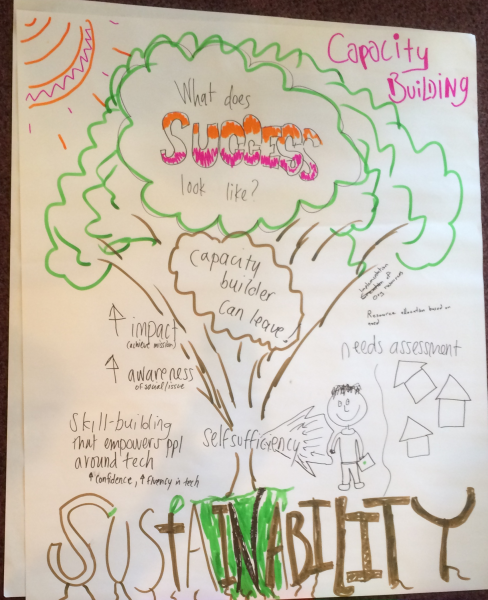 Capacity
Building
What does
SUCCESS
look like?
capacity
builder
can leave!
Implementation
Org resources
Resource allocation based on
need
needs assessment
↑ impact
(achieve mission)
↑ awareness
of social/issue
Skill-building
that empowers ppl
around tech
↑ Confidence, ↑ fluency in tech
self sufficiency
SUStAINABILITY